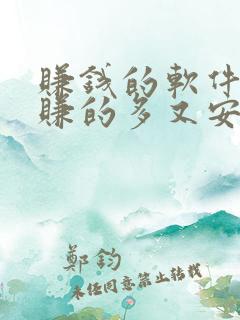 賺錢的軟件
賺的多又安
鄭鈞
未任同意禁止转载